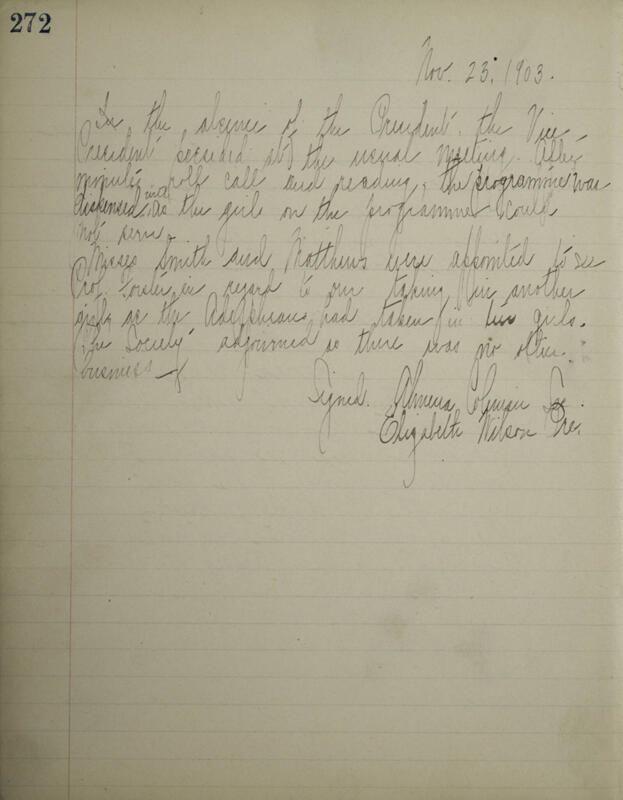 272
Nov. 23, 1903.
In the absence of the President, the Vice
President presided at the usual meeting. After
minutes, roll call and reading, the programme was
dispensed with as the girls on the programme could
not serve.
Misses Smith and Matthews were appointed to see
Prof. in regard to our taking in another
girl, as the Adelphians had taken in two girls.
The Society adjourned as there was no other
business.
Signed. Almera Coleman Sec.
Elizabeth Wilson Pre.